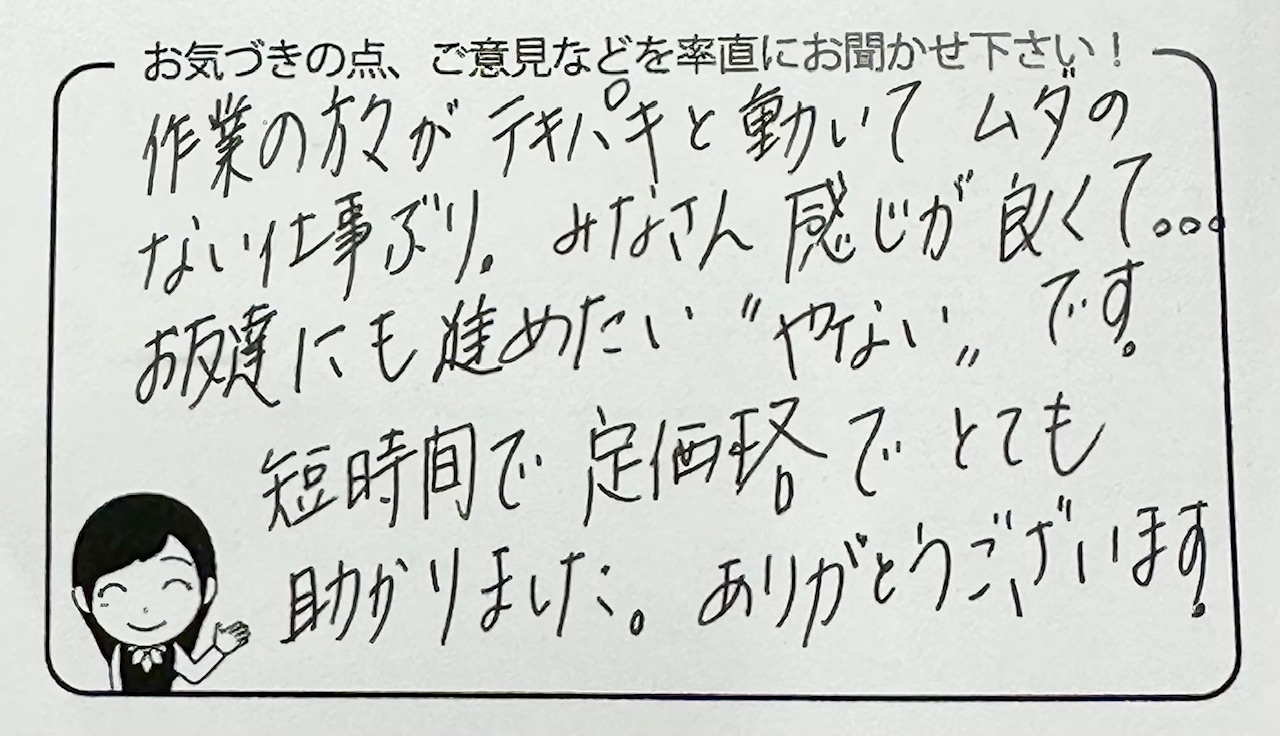 お気づきの点、ご意見などを率直にお聞かせ下さい！
作業の方々がテキパキと動いてムダの
ない仕事ぶり。みなさん感じが良くて...
お友達にも進めたい〝やない〟です。
短時間で定価格でとても
助かりました。ありがとうございます。